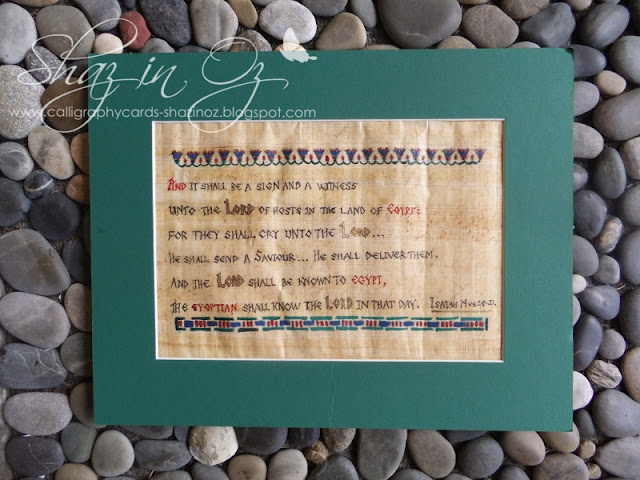 Shaz in Oz
www.calligraphycards-shazinoz.blogspot.com
And it shall be a sign and a witness
unto the Lord of hosts in the land of Egypt:
for they shall cry unto the Lord...
He shall send a Saviour... He shall deliver them,
And the Lord shall be known to Egypt,
the Egyptian shall know the Lord in that day. Isaiah 19vs20-21.